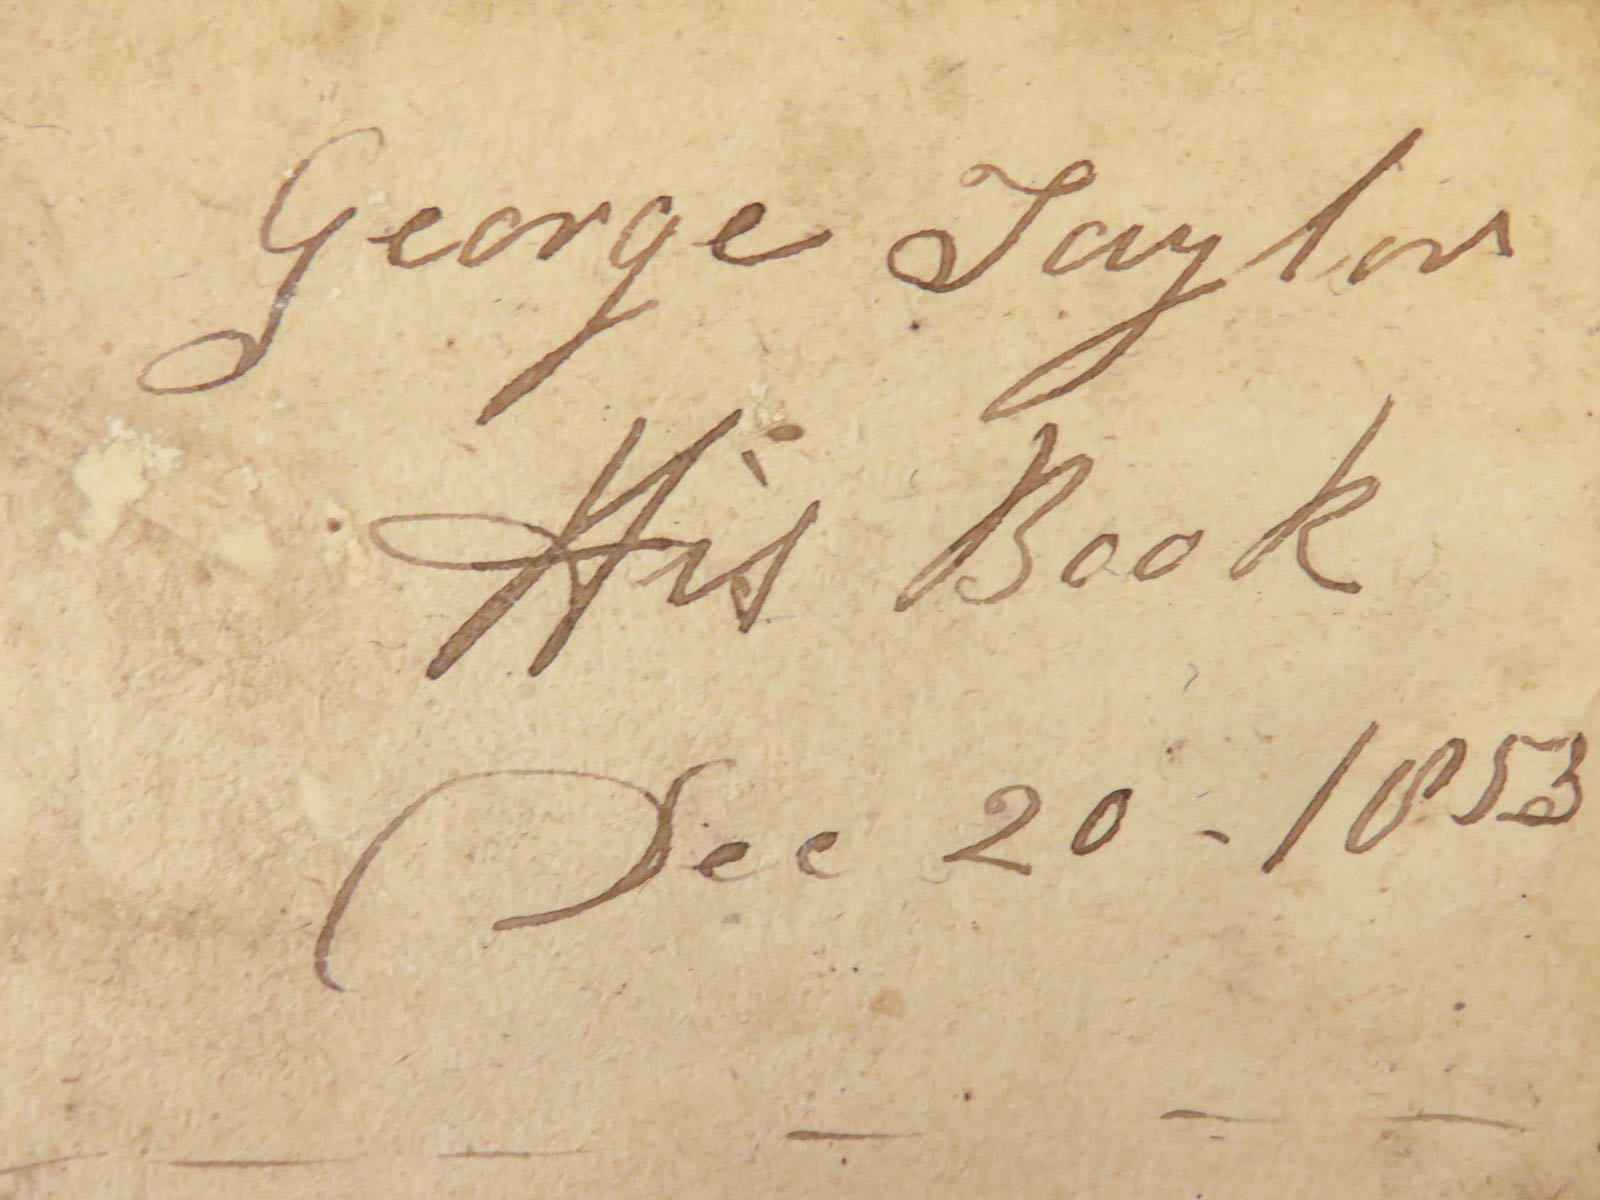 George Taylor
His Book
Dec 20 - 1853